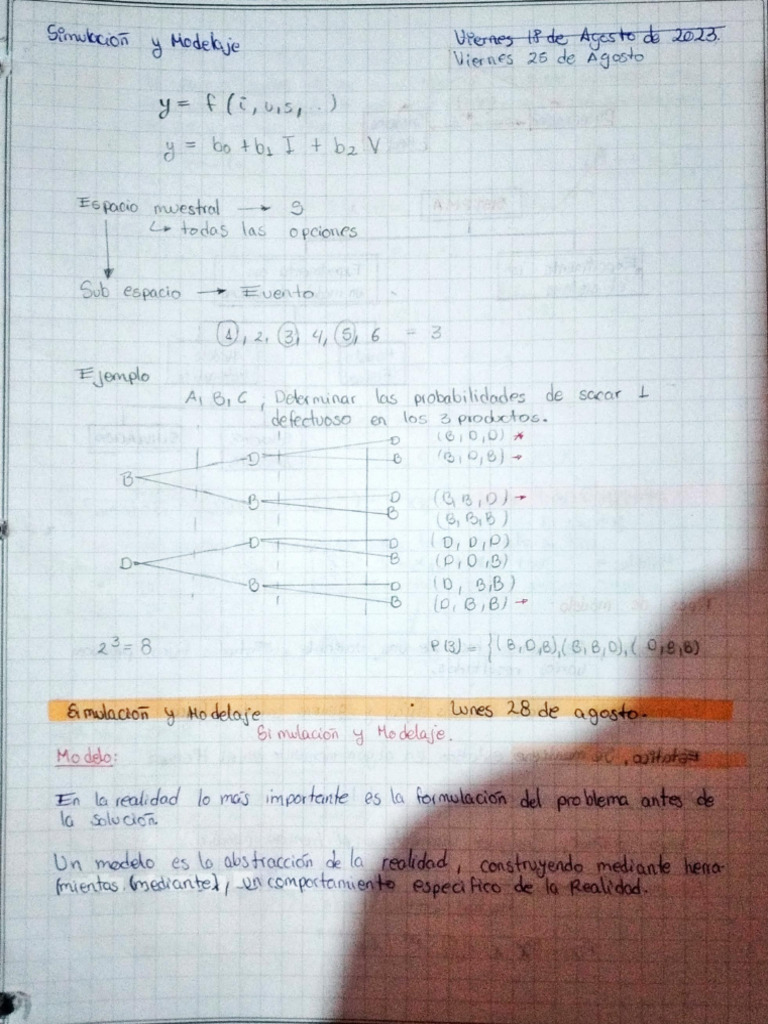 Simulación y Modelaje
Viernes 18 de Agosto de 2023.
Viernes 25 de Agosto
y = f (i, u, s, ..)
y = b0 + b1 I + b2 V
Espacio muestral → S
↳ todas las opciones
Sub espacio → Evento
1, 2, 3, 4, 5, 6 = 3
Ejemplo
A, B, C, Determinar las probabilidades de sacar 1
defectuoso en los 3 productos.
D (B, D, D) *
B D B (B, D, B) →
B D (B, B, D) →
B (B, B, B)
D D (D, D, D)
D B (D, D, B)
B D (D, B, B)
B (D, B, B) →
2³ = 8
P(3) = {(B, D, B), (B, B, D), (D, B, B)
Simulación y Modelaje · Lunes 28 de agosto.
Simulación y Modelaje.
Modelo:
En la realidad lo más importante es la formulación del problema antes de
la solución.
Un modelo es la abstracción de la realidad, construyendo mediante herra-
mientas (mediante), un comportamiento especifico de la Realidad.